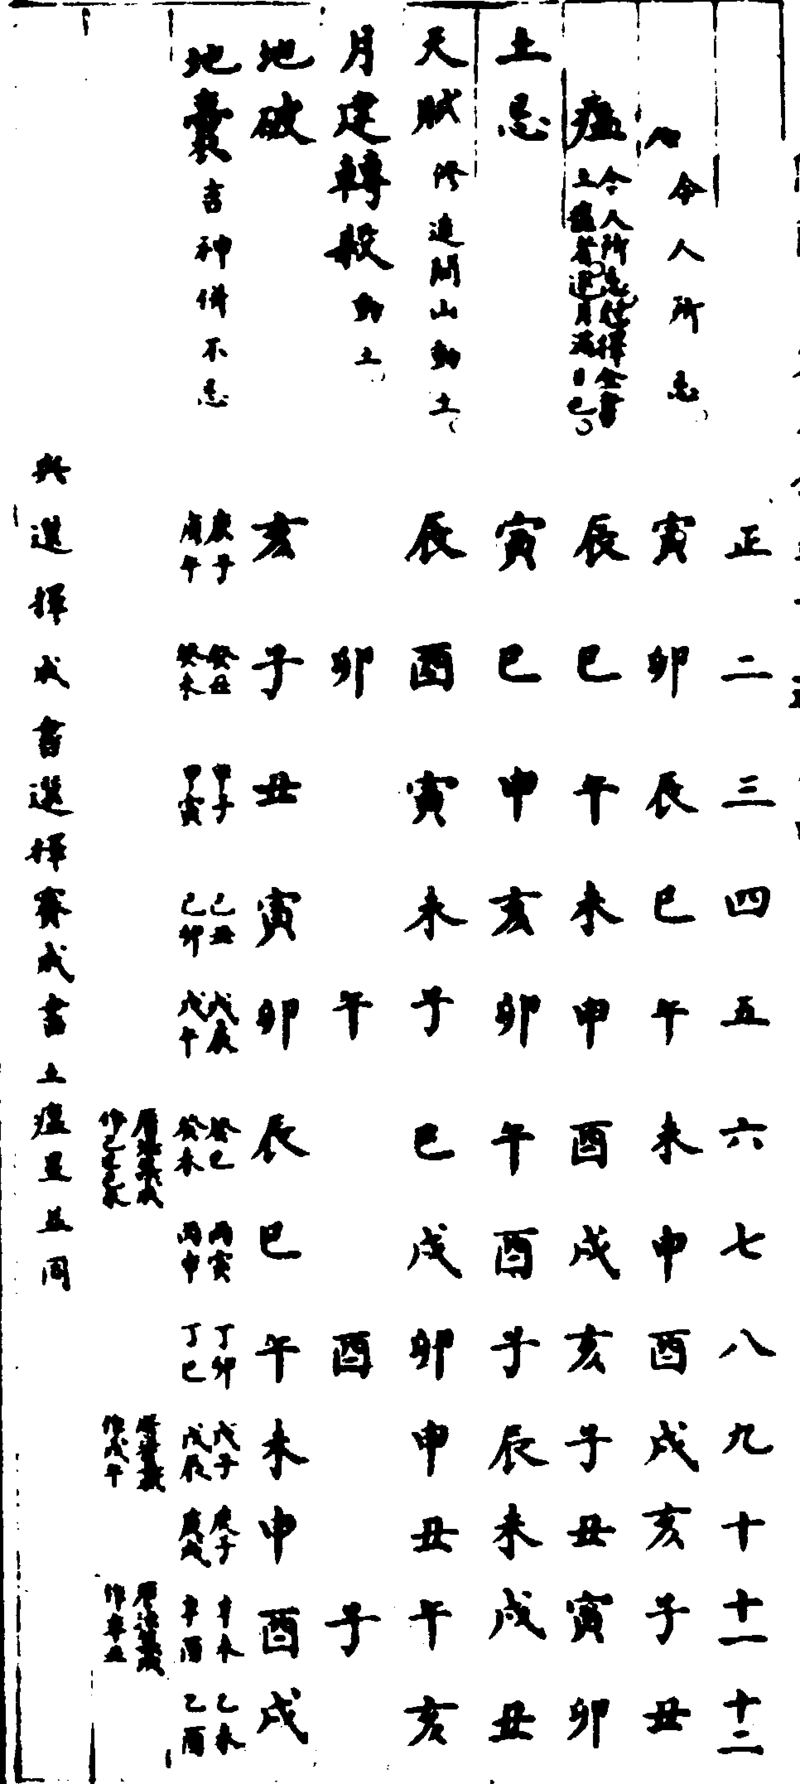 正 二 三 四 五 六 七 八 九 十 十一 十二
令人所忌 寅 卯 辰 巳 午 未 申 酉 戌 亥 子 丑
瘟 令人所忌 辰 巳 午 未 申 酉 戌 亥 子 丑 寅 卯
土忌 寅 巳 申 亥 卯 午 酉 子 辰 未 戌 丑
天賊 修造開山動土 辰 酉 寅 未 子 巳 戌 卯 申 丑 午 亥
月建轉殺 動土 卯 午 酉 子
地破 亥 子 丑 寅 卯 辰 巳 午 未 申 酉 戌
地囊 吉神併不忌 庚子 庚午 癸丑 癸未 甲子 甲寅 己丑 己卯 戊辰 戊午 癸巳 癸未 丙寅 丙申 丁卯 丁巳 戊子 戊辰 庚子 庚戌 辛未 辛酉 乙未 乙酉
作戊午
作辛丑
與選擇成書選擇賽成書土瘟星並同